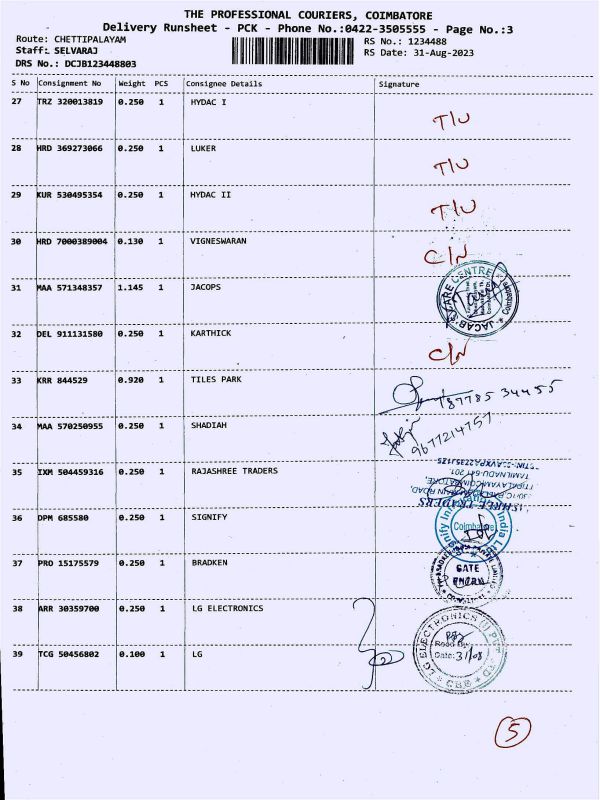 THE PROFESSIONAL COURIERS, COIMBATORE
Delivery Runsheet - PCK - Phone No.:0422-3505555 - Page No.:3
Route: CHETTIPALAYAM RS No.: 1234488
Staff: SELVARAJ RS Date: 31-Aug-2023
DRS No.: DCJB123448803
S No Consignment No Weight PCS Consignee Details Signature
27 TRZ 320013819 0.250 1 HYDAC I T/U
28 HRD 369273066 0.250 1 LUKER T/U
29 KUR 530495354 0.250 1 HYDAC II T/U
30 HRD 7000389004 0.130 1 VIGNESWARAN C/N
31 MAA 571348357 1.145 1 JACOPS
CARE CENTRE
Coimbatore
32 DEL 911131580 0.250 1 KARTHICK C/N
33 KRR 844529 0.920 1 TILES PARK 87785 34455
34 MAA 570250955 0.250 1 SHADIAH 9677214757
35 IXM 504459316 0.250 1 RAJASHREE TRADERS
TAMILNADU-641 201
SHREE TRADERS
36 DPM 685580 0.250 1 SIGNIFY
India Ltd
Coimbatore
37 PRO 15175579 0.250 1 BRADKEN
GATE
ENTRY
38 ARR 30359700 0.250 1 LG ELECTRONICS
LG ELECTRONICS (I) PVT. LTD
39 TCG 50456802 0.100 1 LG
Date: 31/08
2
5